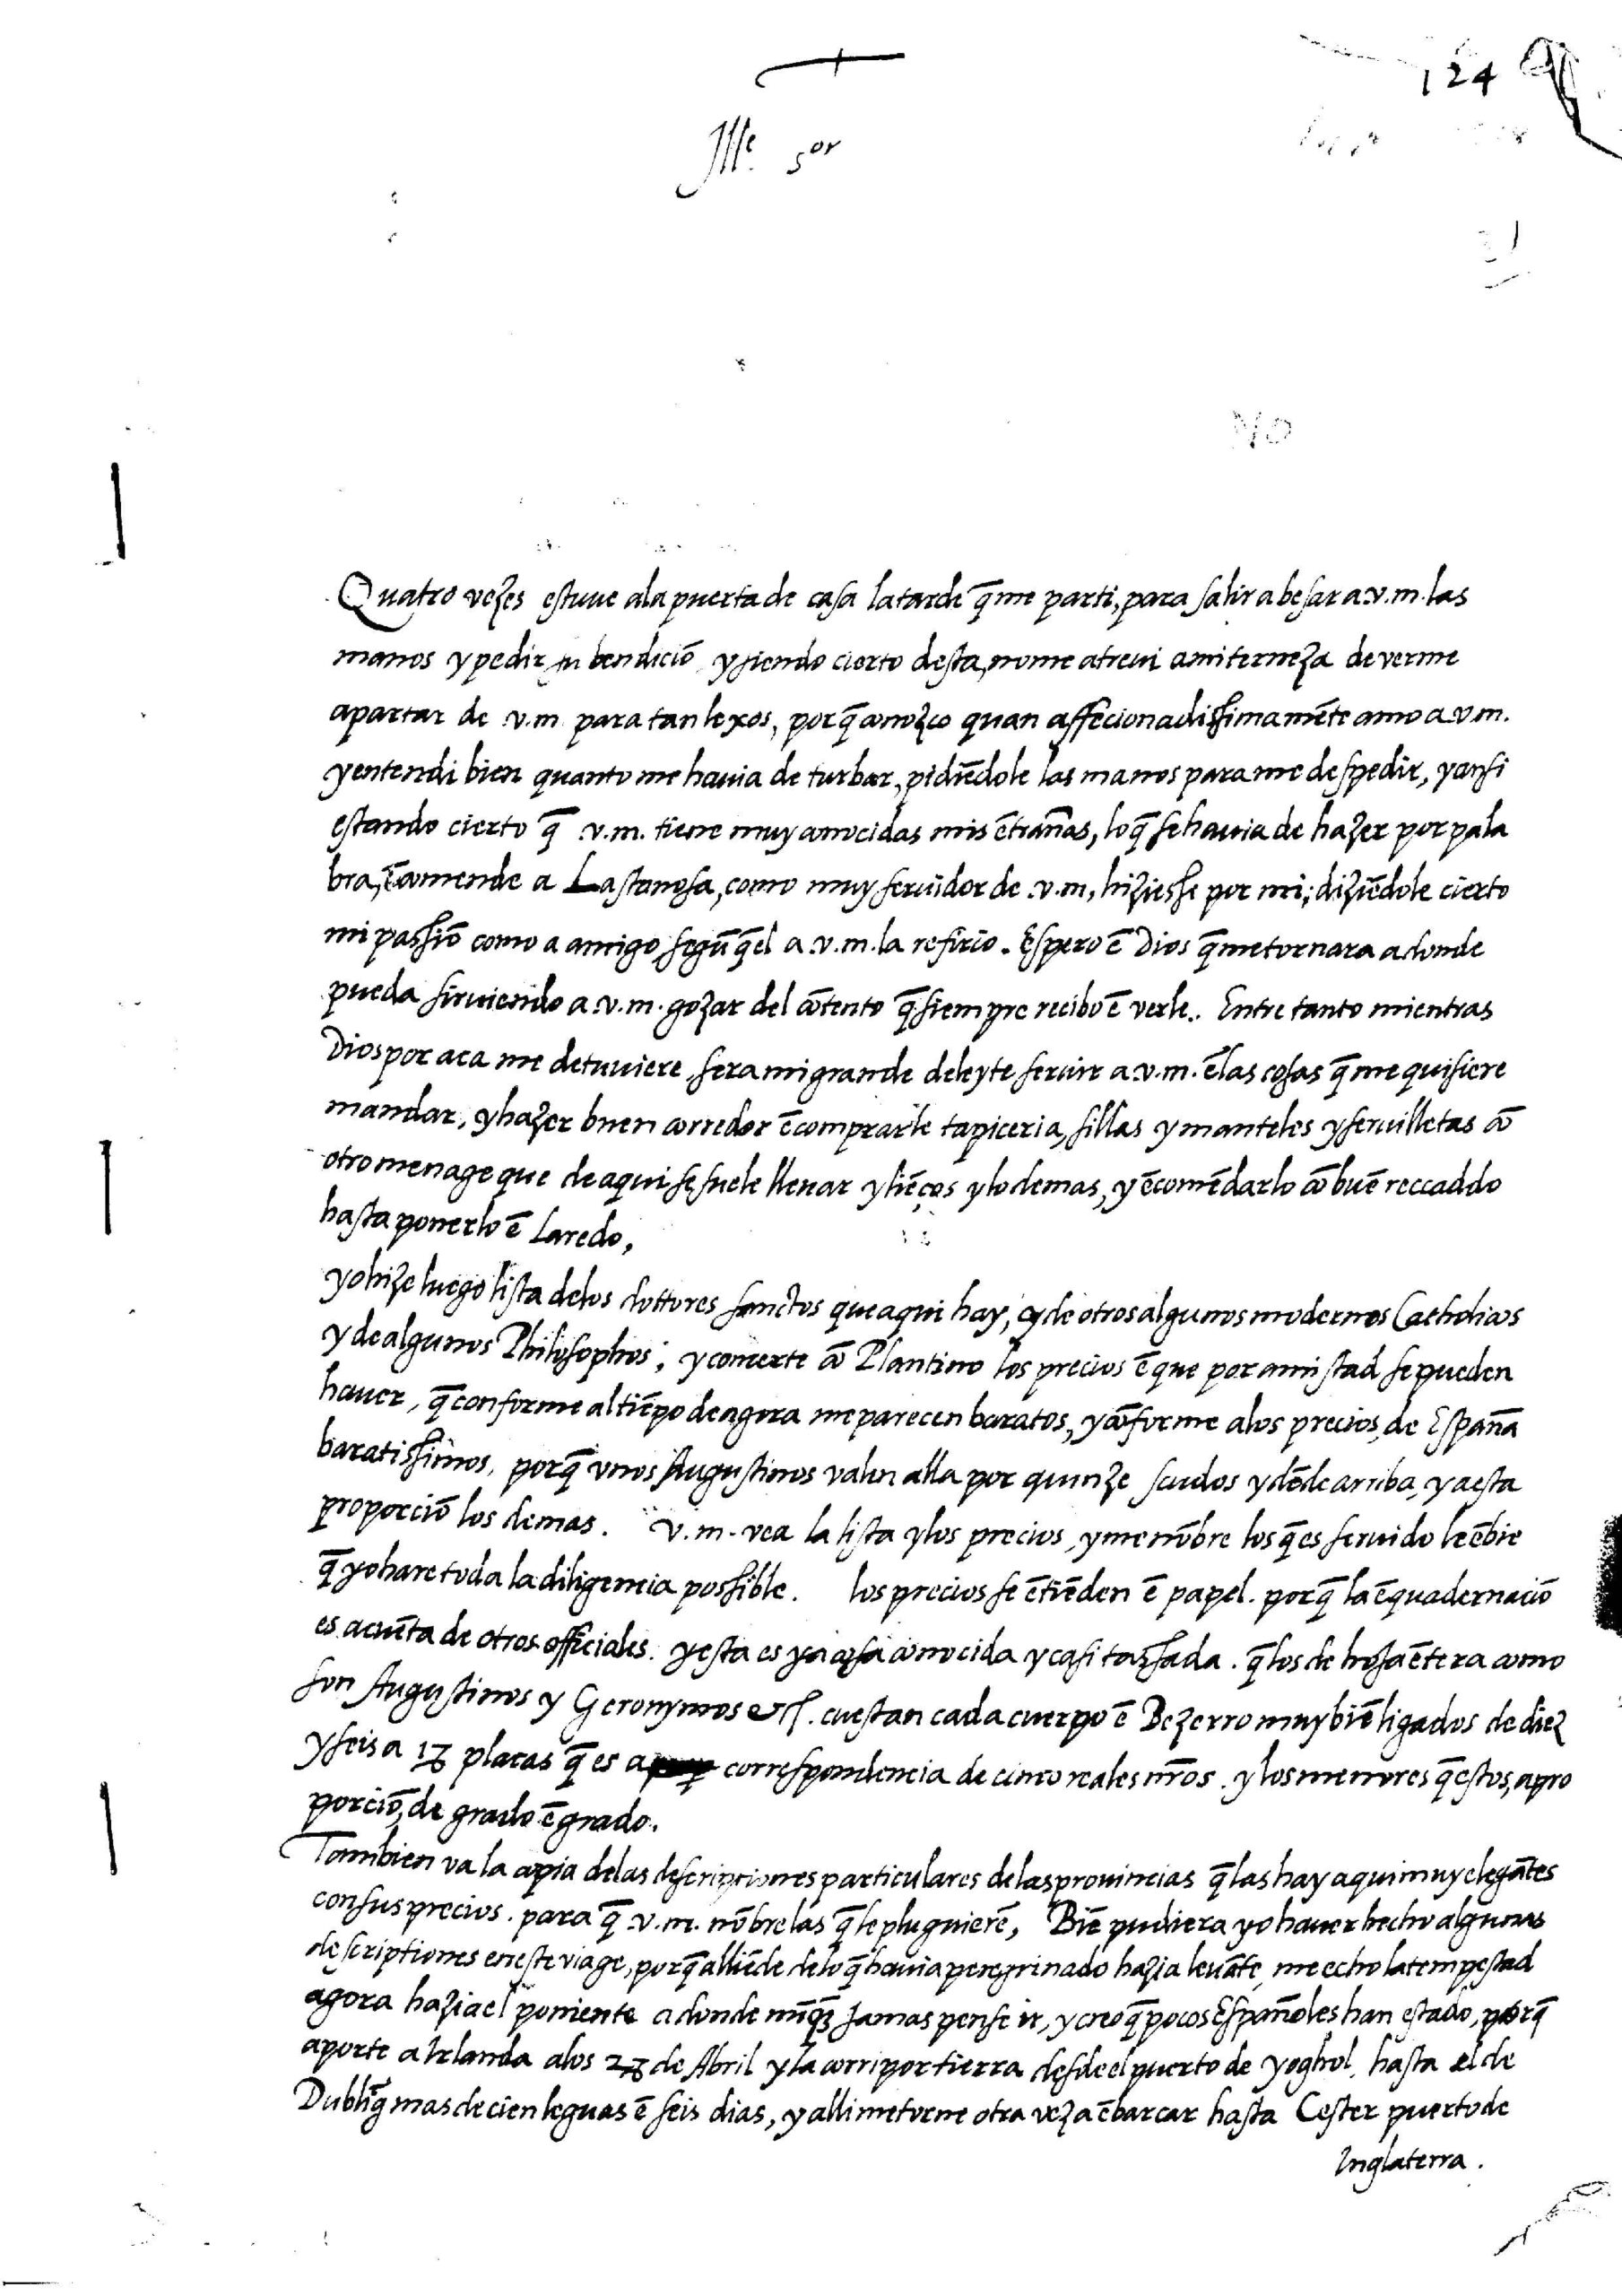 124
Ille. sor
Quatro vezes estuue ala puerta de casa la tarde q̄ me parti, para salir a besar a .v.m. las
manos y pedir su bendiciō, y siendo cierto desta, no me atreui a mi terneza de verme
apartar de .v.m. para tan lexos, porq̄ conozco quan affecionadissimamēte amo a v.m.
y entendi bien quanto me hauia de turbar, pidiēdole las manos para me despedir, y ansi
estando cierto q̄ .v.m. tiene muy conocidas mis ētrañas, lo q̄ se hauia de hazer por pala
bra, ēcomende a Lastanosa, como muy seruidor de .v.m, hiziesse por mi; diziēdole cierto
mi passiō como a amigo, segū q̄ el a .v.m. la refirio. Espero ē Dios q̄ me tornara a donde
pueda siruiendo a .v.m. gozar del cōtento q̄ siempre recibo ē verle. Entre tanto mientras
Dios por aca me detuuiere, sera mi grande deleyte seruir a .v.m. ē las cosas q̄ me quisiere
mandar, y hazer buen corredor ē comprarle tapiceria, sillas y manteles y seruilletas cō
otro menage que de aqui se suele lleuar y liēços y lo demas, y ēcomēdarlo cō buē reccaddo
hasta ponerlo ē Laredo,
yo hize luego lista delos dottores sanctos que aqui hay, y de otros algunos modernos Catholicos
y de algunos Philosophos; y concerte cō Plantino los precios ē que por amistad se pueden
hauer, q̄ conforme al tiēpo de agora me parecen baratos, y cōforme a los precios de España
baratissimos, porq̄ vnos Augustinos valen alla por quinze scudos y dēde arriba, y a esta
proporciō los demas. v.m. vea la lista y los precios, y me nōbre los q̄ es seruido le ēbie
q̄ yo hare toda la diligencia possible. los precios se ētiēden ē papel. porq̄ la ēquadernaciō
es a cuēta de otros officiales. y esta es ya cosa conocida y casi tassada. q̄ los de hoja ētera como
son Augustinos y Geronymos &c. cuestan cada cuerpo ē Bezerro muy biē ligados de diez
y seis a 18 placas q̄ es a correspondencia de cinco reales nr̄os. y los menores q̄ estos, a pro
porciō, de grado ē grado.
Tambien va la copia delas descriptiones particulares de las prouincias q̄ las hay aqui muy elegātes
con sus precios. para q̄ .v.m. nōbre las q̄ le pluguierē, Biē pudiera yo hauer hecho algunas
descriptiones en este viage, porq̄ alliēde de lo q̄ hauia peregrinado hazia leuāte, me echo la tempestad
agora hazia el poniente a donde nūq̄ jamas pense ir, y creo q̄ pocos Españoles han estado, porq̄
aporte a Irlanda alos 28 de Abril y la corri por tierra desde el puerto de yoghol, hasta el de
Dubliq̄ mas de cien leguas ē seis dias, y alli me torne otra vez a ēbarcar hasta Cester puerto de
Inglaterra.